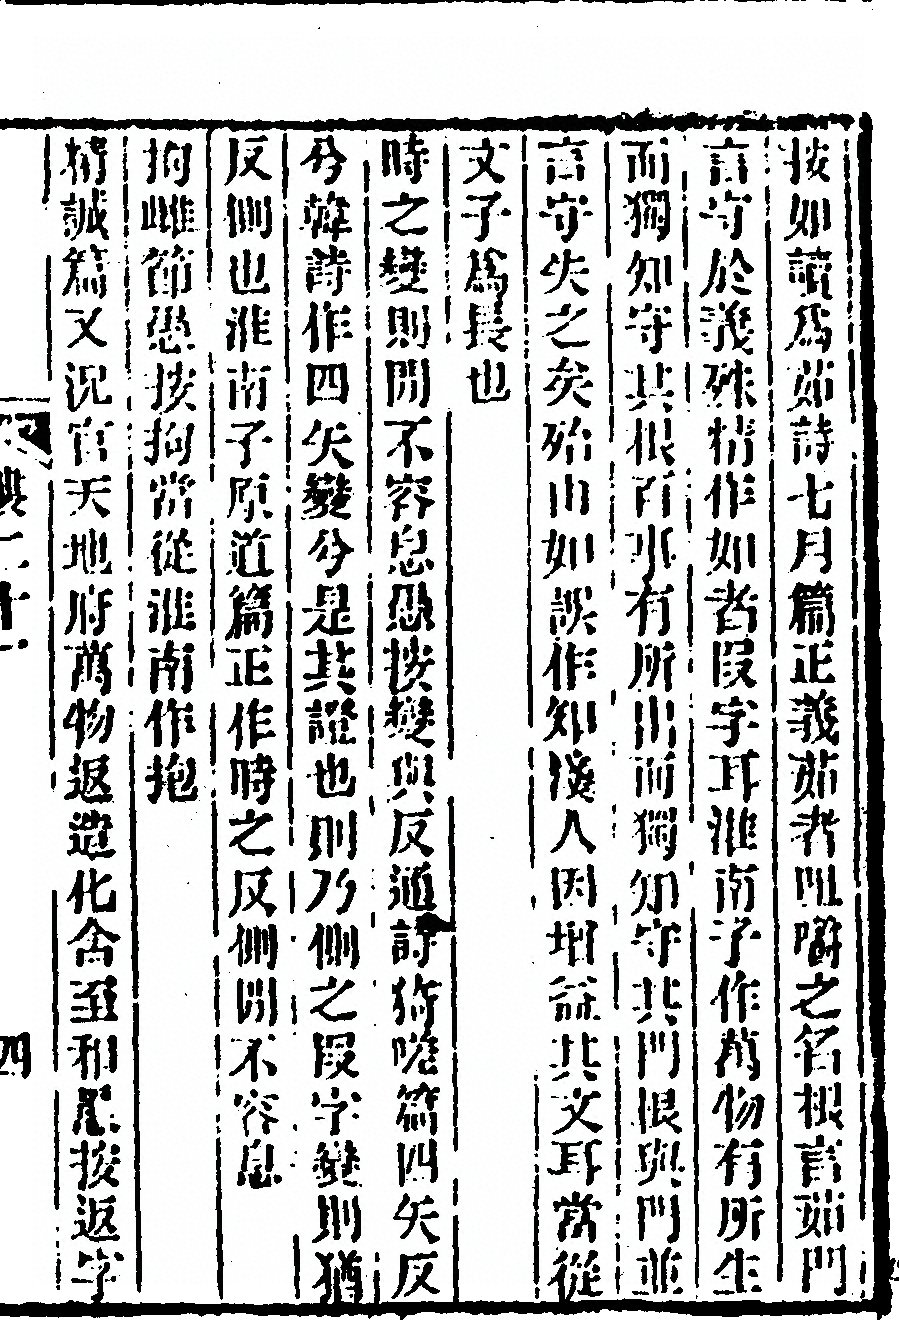 按如讀爲茹詩七月篇正義茹者咀嚼之名根言茹門
言守於義殊精作如者叚字耳淮南子作萬物有所生
而獨知守其根百事有所出而獨知守其門根與門並
言守失之矣殆由如誤作知淺人因增益其文耳當從
文子爲長也
時之變則閒不容息愚按變與反通詩猗嗟篇四矢反
兮韓詩作四矢變兮是其證也則乃側之叚字變則猶
反側也淮南子原道篇正作時之反側閒不容息
拘雌節愚按拘當從淮南作抱
精誠篇又況官天地府萬物返造化含至和愚按返字
四